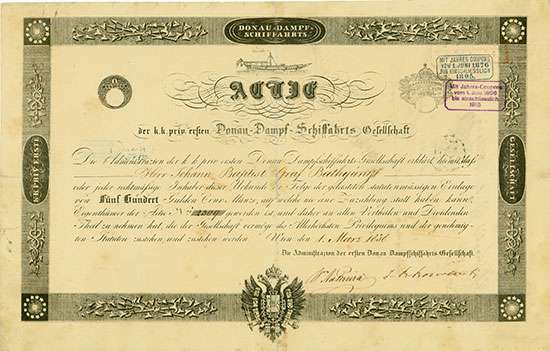 DONAU-DAMPF-
SCHIFFAHRTS
MIT JAHRES COUPONS
VOM 1. JUNI 1876
BIS EINSCHLIESSLICH
1895.
Mit Jahres-Coupons
vom 1. Juni 1896
bis einschliesslich
1915
ACTIE
der k.k. priv. ersten Donau-Dampf-Schiffahrts Gesellschaft
K.K. PRIV. ERSTE
GESELLSCHAFT
Die Administration der k k priv ersten Donau Dampfschiffahrts-Gesellschaft erklärt hiemit, daß
Herr Johann Baptist Graf Batthyany
oder jeder rechtmäßige Inhaber dieser Urkunde in Folge der geleisteten statutenmässigen Einlage
von Fünf Hundert Gulden Conv. Münz, auf welche nie eine Zuzahlung statt haben kann,
Eigenthümer der Actie N geworden ist, und daher an allen Vortheilen und Dividenden
Theil zu nehmen hat, die der Gesellschaft vermög des Allerhöchsten Privilegiums und der genehmig-
ten Statuten zustehen, und zustehen werden. Wien den 1. März
Die Administration der ersten Donau Dampfschiffahrts-Gesellschaft.